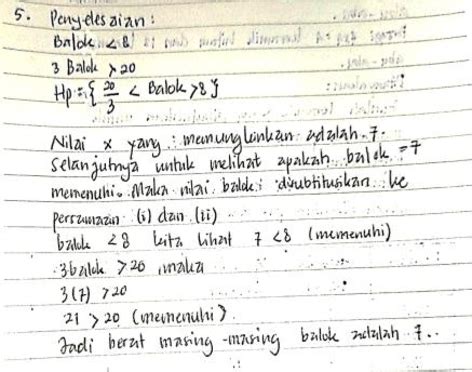 5. Penyelesaian :
Balok < 8
3 Balok > 20
Hp = { 20/3 < Balok > 8 }
Nilai x yang memungkinkan adalah 7.
Selanjutnya untuk melihat apakah balok = 7
memenuhi. Maka nilai balok disubtitusikan ke
persamaan (i) dan (ii)
balok < 8 kita lihat 7 < 8 (memenuhi)
3 balok > 20 maka
3(7) > 20
21 > 20 (memenuhi)
Jadi berat masing-masing balok adalah 7.